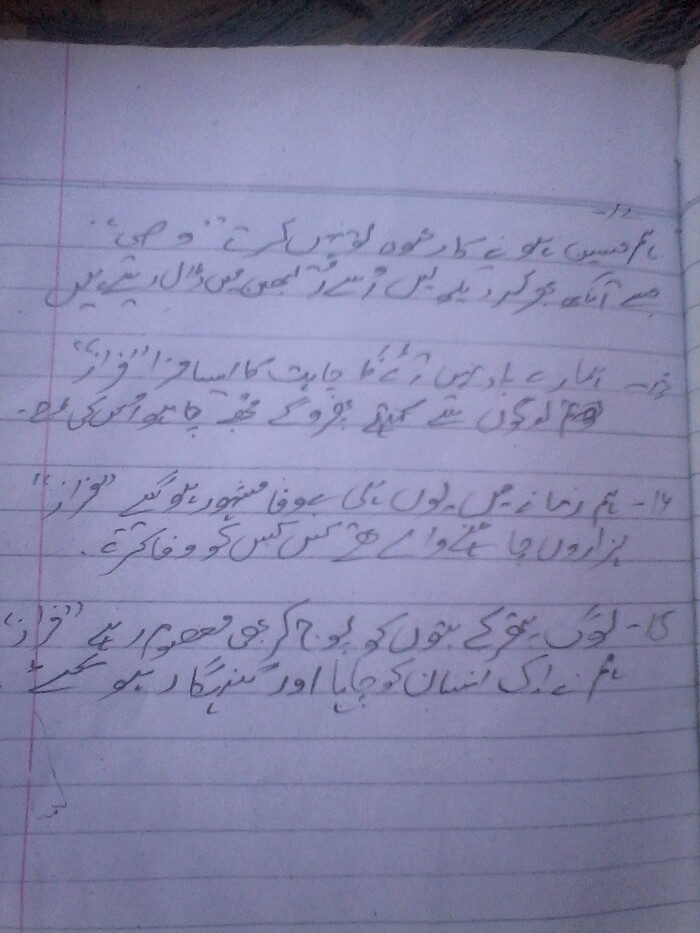 12-
ہم حسین ہونے کا دعوہ تو نہیں کرتے "وصی"
جسے آنکھ بھر کر دیکھ لیں اُسے اُلجھن میں ڈال دیتے ہیں
13- ہمارے بعد نہیں آئے گا چاہت کا ایسا مزا "فراز"
تم لوگوں سے کہتے پھرو گے مجھے چاہو اُس کی طرح۔
14- ہم زمانے میں یوں ہی بےوفا مشہور ہو گئے "فراز"
ہزاروں چاہنے والے تھے کس کس کو وفا کرتے۔
15- لوگ پتھر کے بتوں کو پوج کر بھی معصوم رہے "فراز"
ہم نے اِک انسان کو چاہا اور گنہگار ہو گئے